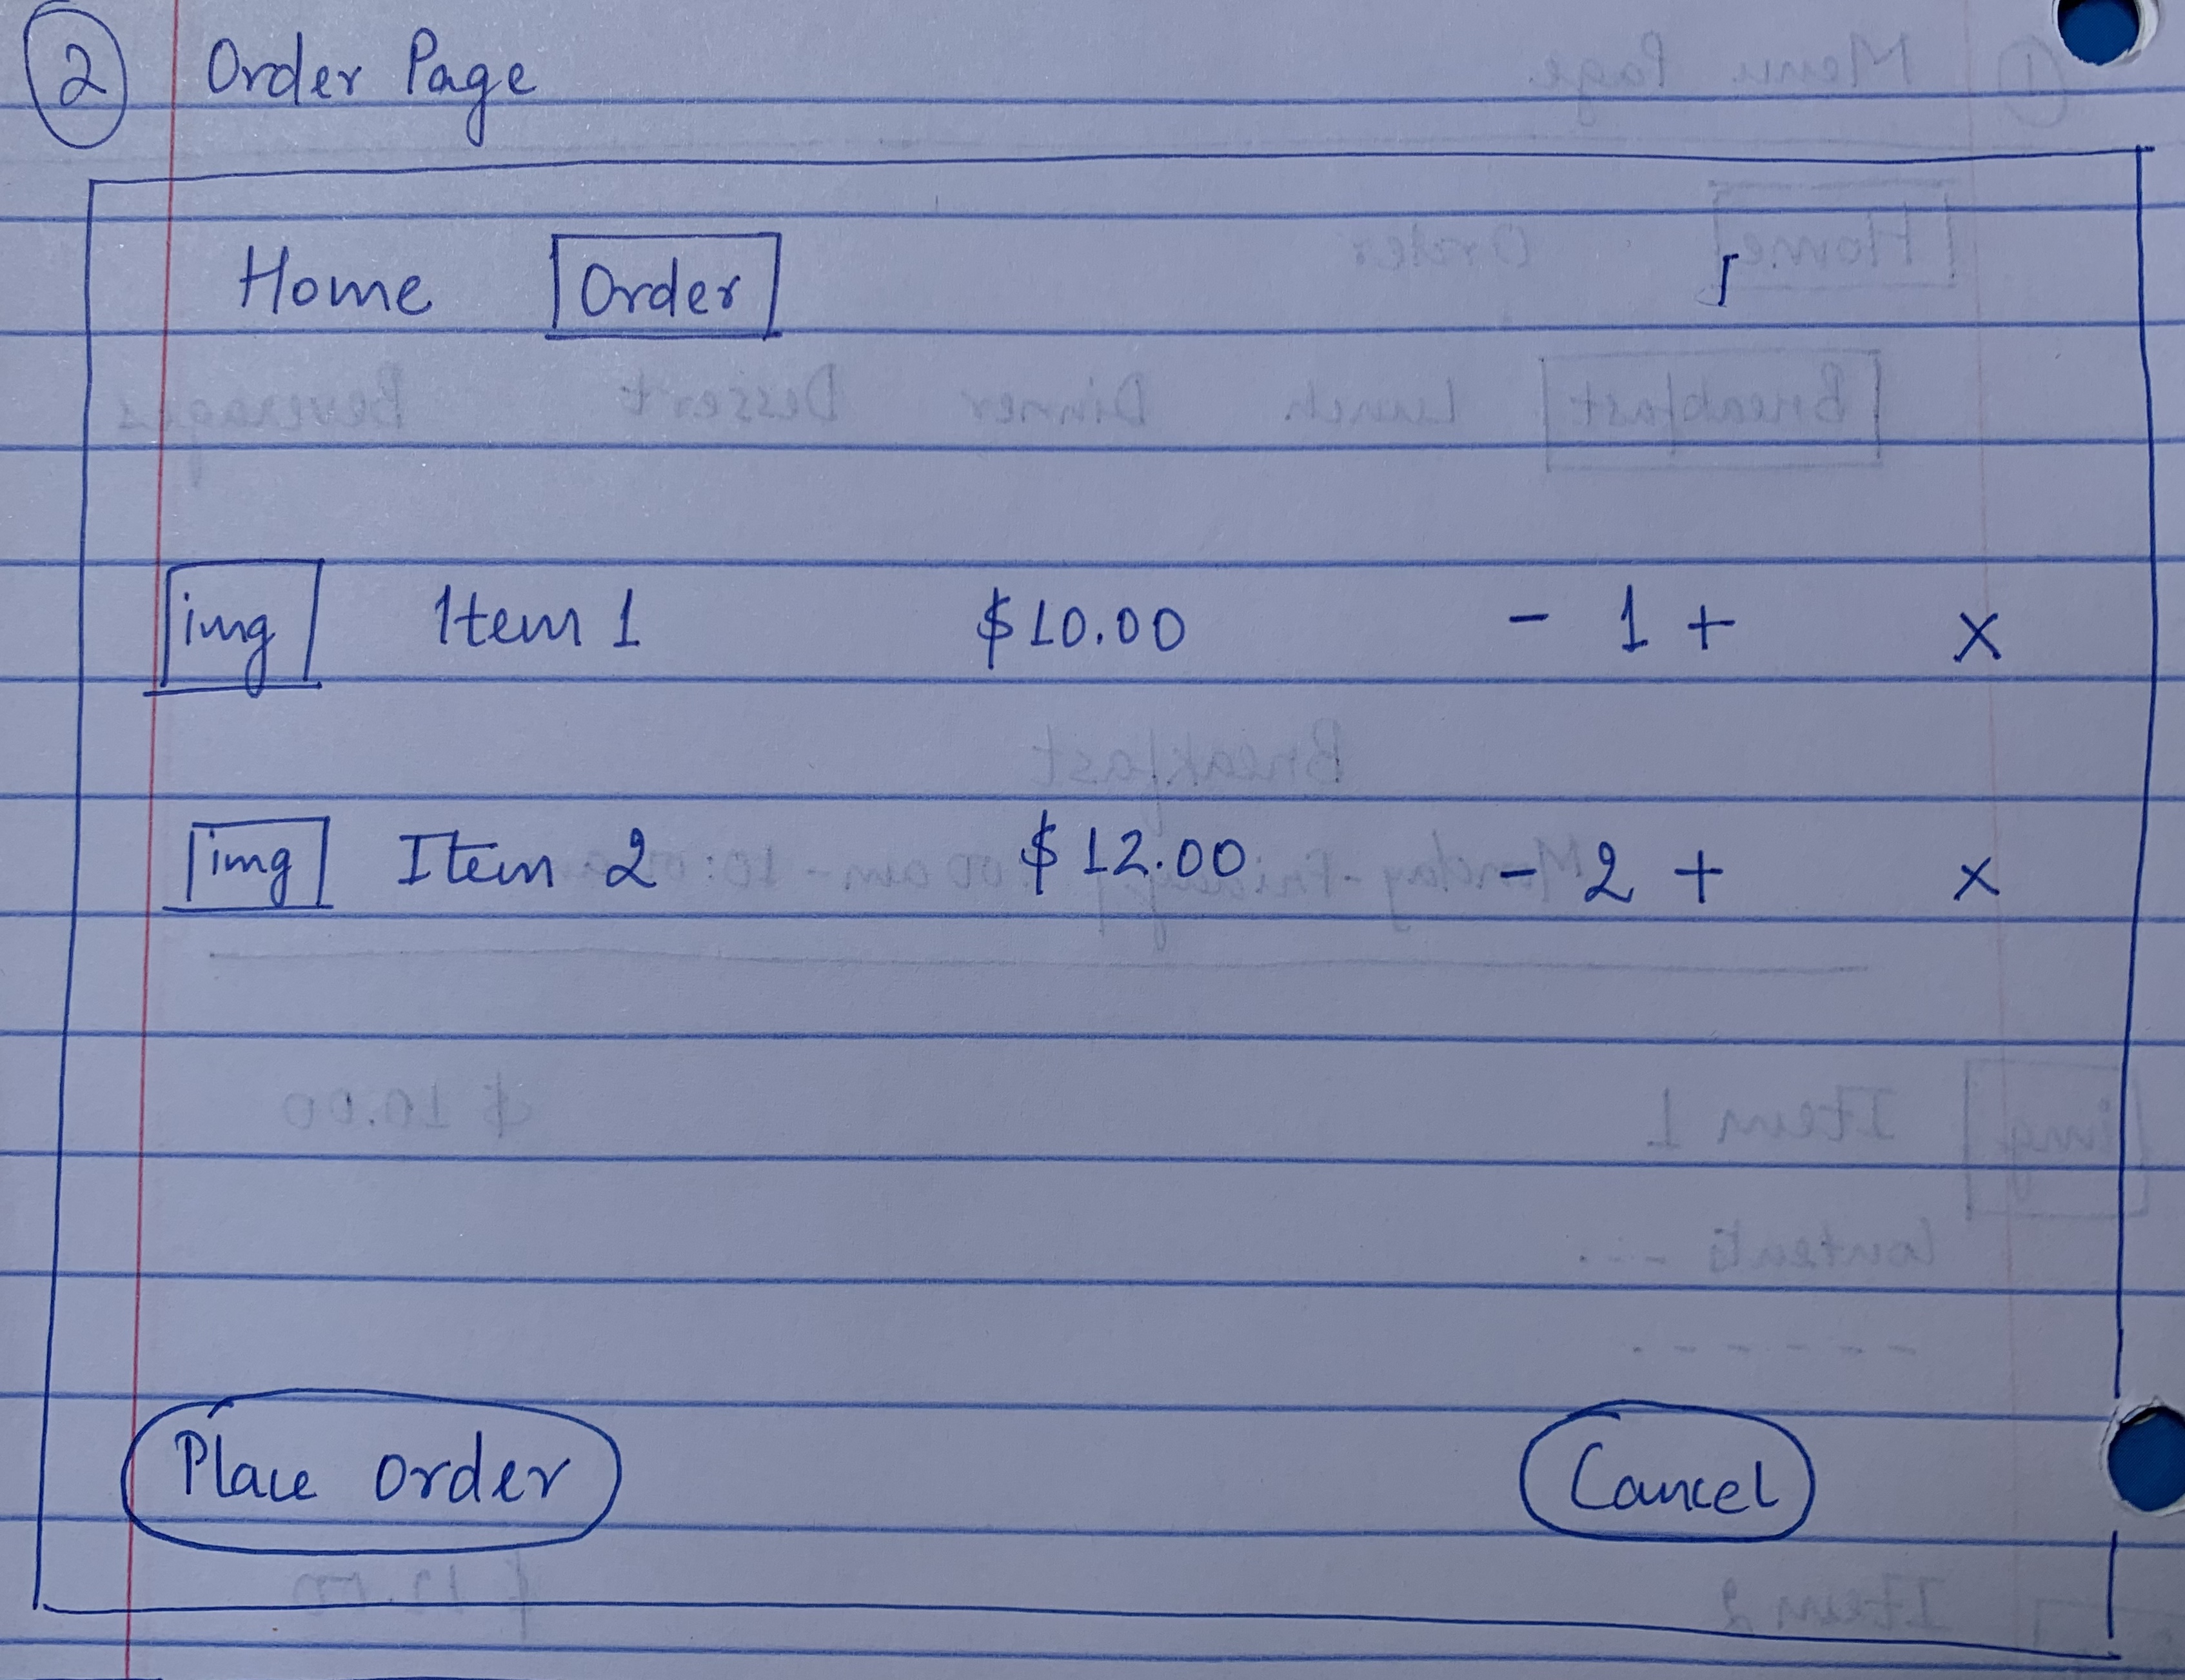 2 Order Page
Home Order
img Item 1 $10.00 - 1 + x
img Item 2 $12.00 - 2 + x
Place order Cancel